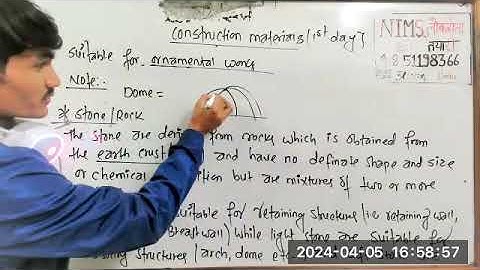 Construction materials (1st day)
NIMS
तयारी
9851198366
suitable for ornamental works
Note:-
Dome =
* Stone/Rock
The stone are deri from rocks which is obtained from
the earth crust and have no definate shape and size
or chemical ition but are mixtures of two or more
suitable for retaining structures (i.e. retaining wall,
Breast wall) while light stone are suitable for
structures (arch, dome etc
2024-04-05 16:58:57